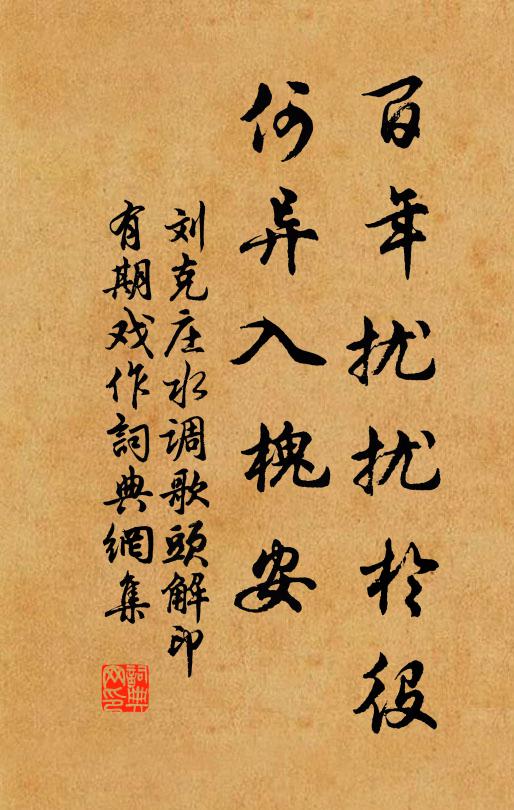 百年扰扰於役
何异入槐安
刘克庄水调歌头解印
有期戏作詞典網集
詞典网印